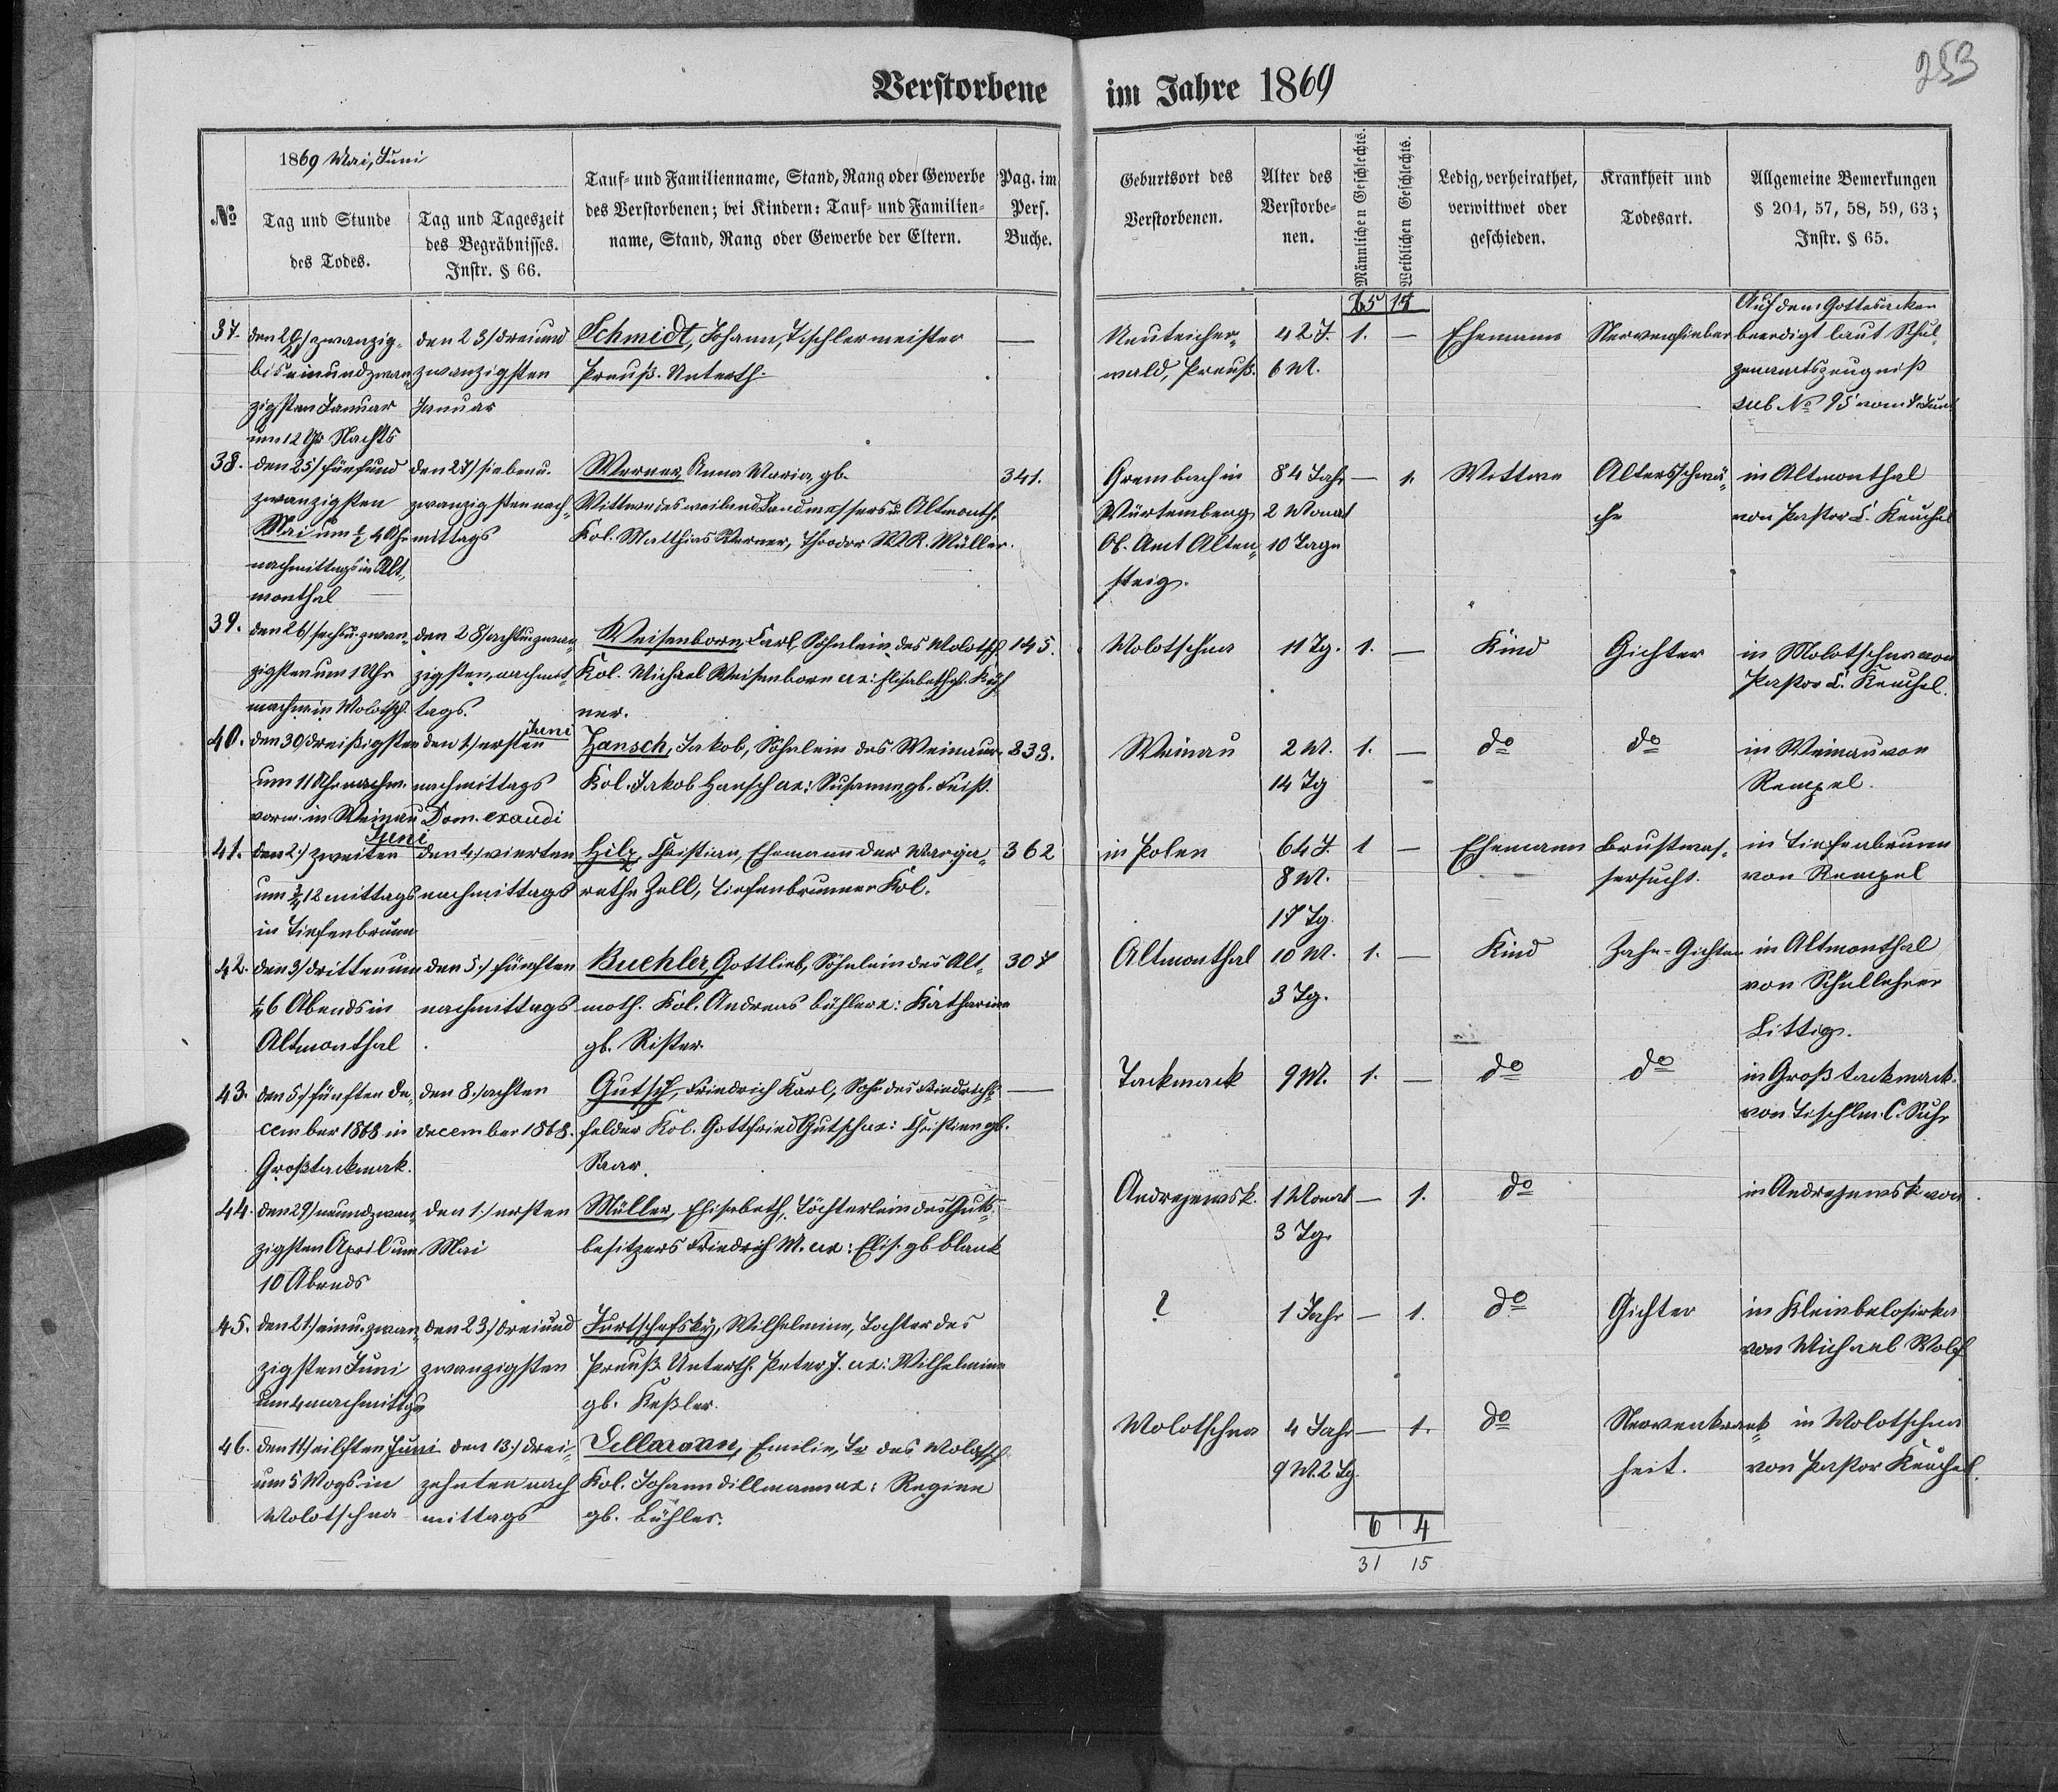 253
Verstorbene im Jahre 1869
1869 Mai, Juni
№
Tag und Stunde
des Todes.
Tag und Tageszeit
des Begräbnisses.
Instr. § 66.
Tauf- und Familienname, Stand, Rang oder Gewerbe
des Verstorbenen; bei Kindern: Tauf- und Familien-
name, Stand, Rang oder Gewerbe der Eltern.
Pag. im
Pers.
Buche.
Geburtsort des
Verstorbenen.
Alter des
Verstorbe-
nen.
Männlichen Geschlechts.
Weiblichen Geschlechts.
Ledig, verheirathet,
verwittwet oder
geschieden.
Krankheit und
Todesart.
Allgemeine Bemerkungen
§ 204, 57, 58, 59, 63;
Instr. § 65.
37.
zwanzig-
bis einundzwan-
zigsten Januar
um 12 Uhr Nachts
den 23/ dreiund
zwanzigsten
Januar
Schmidt, Johann, Tischlermeister
Preuß. Unterth.
—
Neuteicher-
wald, Preuß.
42 J.
6 M.
1.
—
Ehemann
Nervenfieber
Auf dem Gottesacker
beerdigt laut Schul-
zenamtszeugniß
sub № 95 vom
38.
den 25/ fünfund
zwanzigsten
Mai um ½ 4 Uhr
nachmittags in Alt-
monthal
den 27/ siebenu.
zwanzigsten nach-
mittags
Werner, Anna Maria, gb.
Wittwe des weiland Landmessers u. Altmonth.
Kol. Matthias Werner, Theodor W. R. Müller.
341.
Grembach in
Würtemberg
Ob. Amt Alten-
steig.
84 Jahr
2 Monat
10 Tage
—
1.
Wittwe
Altersschwä-
che
in Altmonthal
von Pastor C. Keuchel
39.
den 26/ sechsu. zwan-
zigsten um 1 Uhr
nachm. in Molotsch.
den 28/ achtu. zwan-
zigsten, nachmit-
tags.
Weisenborn, Carl, Söhnlein des Molotsch.
Kol. Michael Weisenborn ux: Elisabeth gb.
ner.
145.
Molotschna
11 Tg.
1.
—
Kind
Gichter
in Molotschna von
Pastor C. Keuchel.
40.
den 30/ dreißigsten
um 11 Uhr nachm.
vorm. in Weinau
den 1/ ersten Juni
nachmittags
Dom. exaudi
Hansch, Jakob, Söhnlein des Weinauer
Kol. Jakob Hansch ux: Susanna, gb. Feiß.
233.
Weinau
2 M.
14 Tg
1.
—
do
do
in Weinau von
Rempel.
41.
den 2./ zweiten Juni
um ¾ 12 mittags
in Tiefenbrunn
den 4./ vierten
nachmittags
Hilz, Christian, Ehemann der Marga-
rethe Zell, Tiefenbrunner Kol.
362
in Polen
64 J.
8 M.
17 Tg.
1
—
Ehemann
Brustwas-
sersucht.
in Tiefenbrunn
von Rempel
42.
den 3/ dritten um
½ 6 Abends in
Altmonthal
den 5./ fünften
nachmittags
Buehler, Gottlieb, Söhnlein des Alt-
moth. Kol. Andreas Bühler ux: Katharina
gb. Rister.
307
Altmonthal
10 M.
3 Tg.
1.
—
Kind
Zahn-Gichter
in Altmonthal
von Schullehrer
Littig.
43.
den 5./ fünften De-
cember 1868 in
Großtackmak.
den 8./ achten
december 1868.
Gutsch, Friedrich Karl, Sohn des Friedrichs-
felder Kol. Gottfried Gutsch ux: Christine gb.
Saar.
—
Tackmack
9 M.
1.
—
do
do
in Großtackmack.
von Tischlm. C. Suhr
44.
den 29/ neunu zwan-
zigsten April um
10 Abends
den 1./ ersten
Mai
Müller, Elisabeth, Töchterlein des Guts-
besitzers Friedrich M. ux: Elis. gb Blank
Andrejewsk.
1 Monat
3 Tg.
—
1.
do
in Andrejewsk von
45.
den 21./ einu. zwan-
zigsten Juni
um 4 nachmittgs
den 23./ dreiund
zwanzigsten
Jurtschefsky, Wilhelmine, Tochter des
Preuß. Unterth. Peter J. ux: Wilhelmine
gb. Keßler.
?
1 Jahr
—
1.
do
Gichter
in Kleinbelosirka
von Michael Wolf
46.
den 11/ eilften Juni
um 5 Mogs in
Molotschna
den 13./ drei-
zehnten nach
mittags
Dillmann, Emilie, To des Molotsch.
Kol. Johann Dillmann ux: Regine
gb. Bühler.
Molotschna
4 Jahr
9 M. 2 Tg.
—
1.
do
Nervenkrank-
heit.
in Molotschna
von Pastor Keuchel.
6 4
31 15